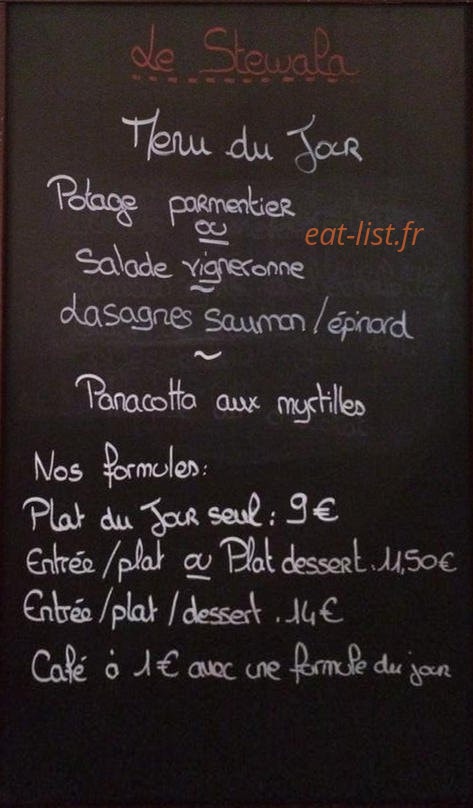 Le Stewala
Menu du Jour
Potage parmentier
ou
eat-list.fr
Salade vigneronne
~
Lasagnes saumon/épinard
~
Panacotta aux myrtilles
Nos formules:
Plat du Jour seul: 9€
Entrée/plat ou Plat dessert.11,50€
Entrée/plat/dessert.14€
Café à 1€ avec une formule du jour